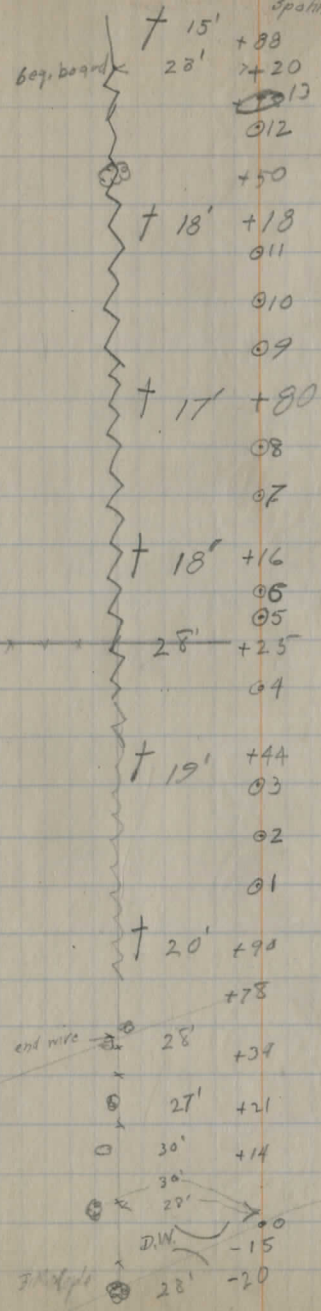 † 15' +88
beg. board 28' +20
⊙13
⊙12
+50
† 18' +18
⊙11
⊙10
⊙9
† 17' +80
⊙8
⊙7
† 18" +16
⊙6
⊙5
x x x 28' +25
⊙4
† 19' +44
⊙3
⊙2
⊙1
† 20' +90
+78
end wire 28' +34
27' +21
30' +14
30'
28' ⊙0
D.W. -15
28' -20